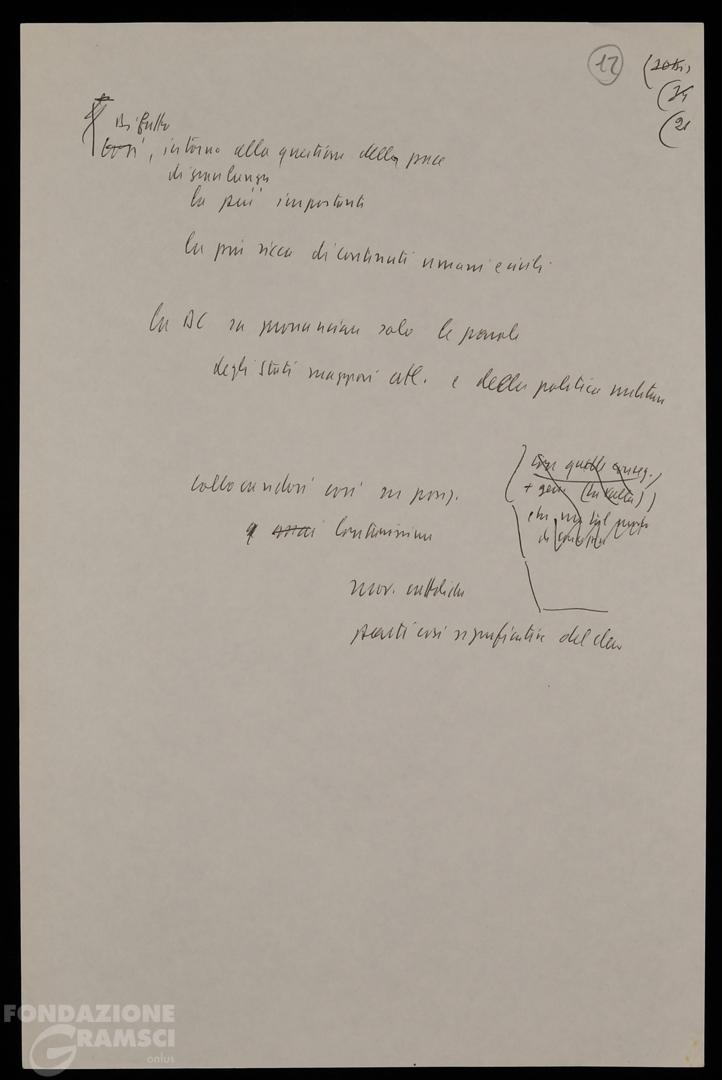 12
(20bis)
(25
(21
Di fatto
Così, intorno alla questione della pace
di gran lunga
la più importante
la più ricca di contenuti umani e civili
la DC sa pronunciare solo le parole
degli Stati maggiori atl. e della politica militare
collocandosi così su posiz.
anni lontanissime
con quelle
+ gen.
che
mov. cattolici
parti così significative del clero
FONDAZIONE
GRAMSCI
onlus